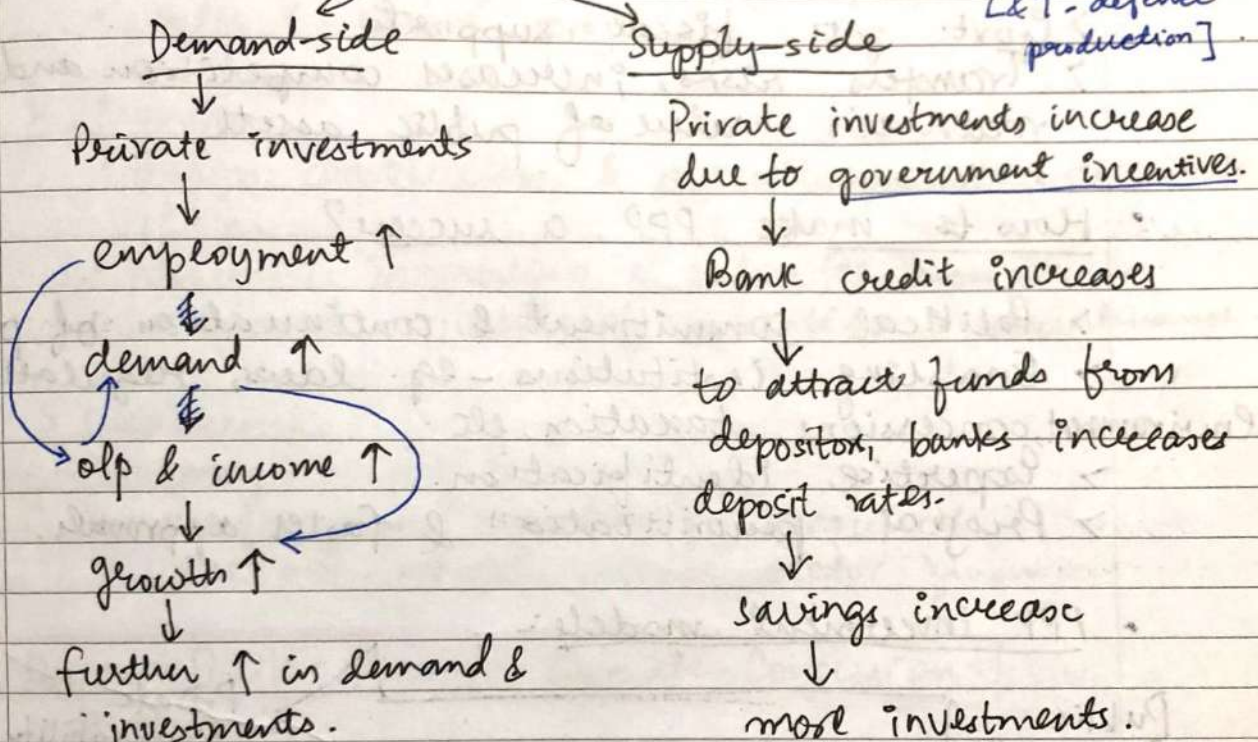 L&T - defence
production].
Demand-side
↓
Private investments
↓
employment ↑
demand ↑
o/p & income ↑
↓
growth ↑
↓
further ↑ in demand &
investments.
Supply-side
Private investments increase
due to government incentives.
↓
Bank credit increases
↓
to attract funds from
depositors, banks increases
deposit rates.
↓
savings increase
↓
more investments.